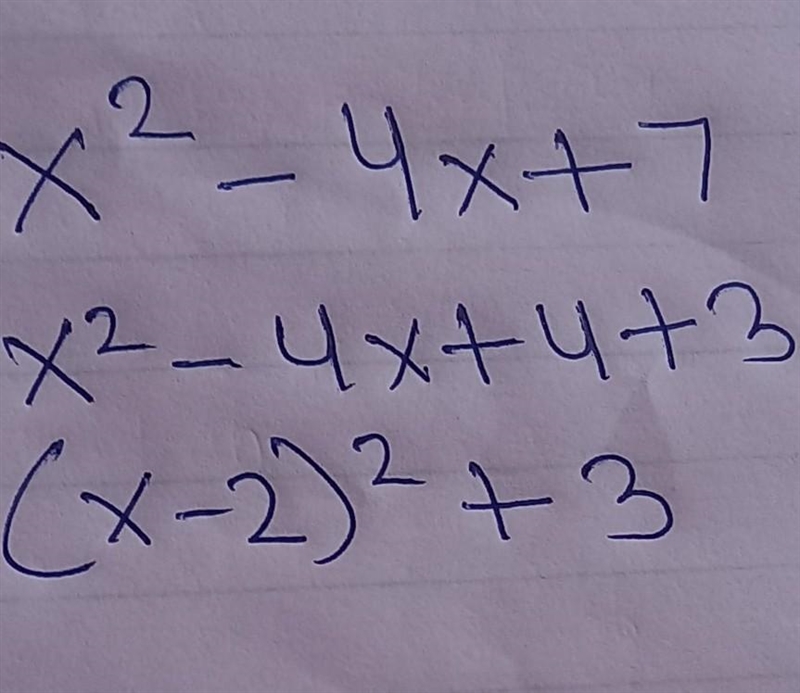 x² - 4x + 7
x² - 4x + 4 + 3
(x - 2)² + 3